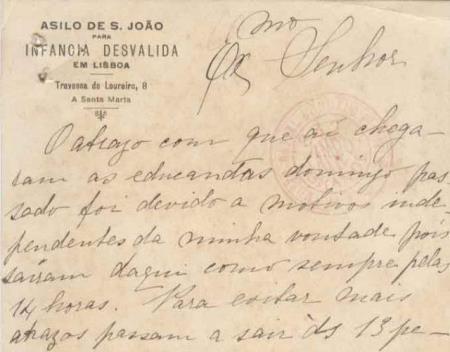 ASILO DE S. JOÃO
PARA
INFANCIA DESVALIDA
EM LISBOA
Travessa do Loureiro, 8
A Santa Marta
Exmo Senhor
O atrazo com que aí chega-
ram as educandas domingo pas-
sado foi devido a motivos inde-
pendentes da minha vontade pois
saíram daqui como sempre pelas
14 horas. Para evitar mais
atrazos passam a sair ás 13 pe-